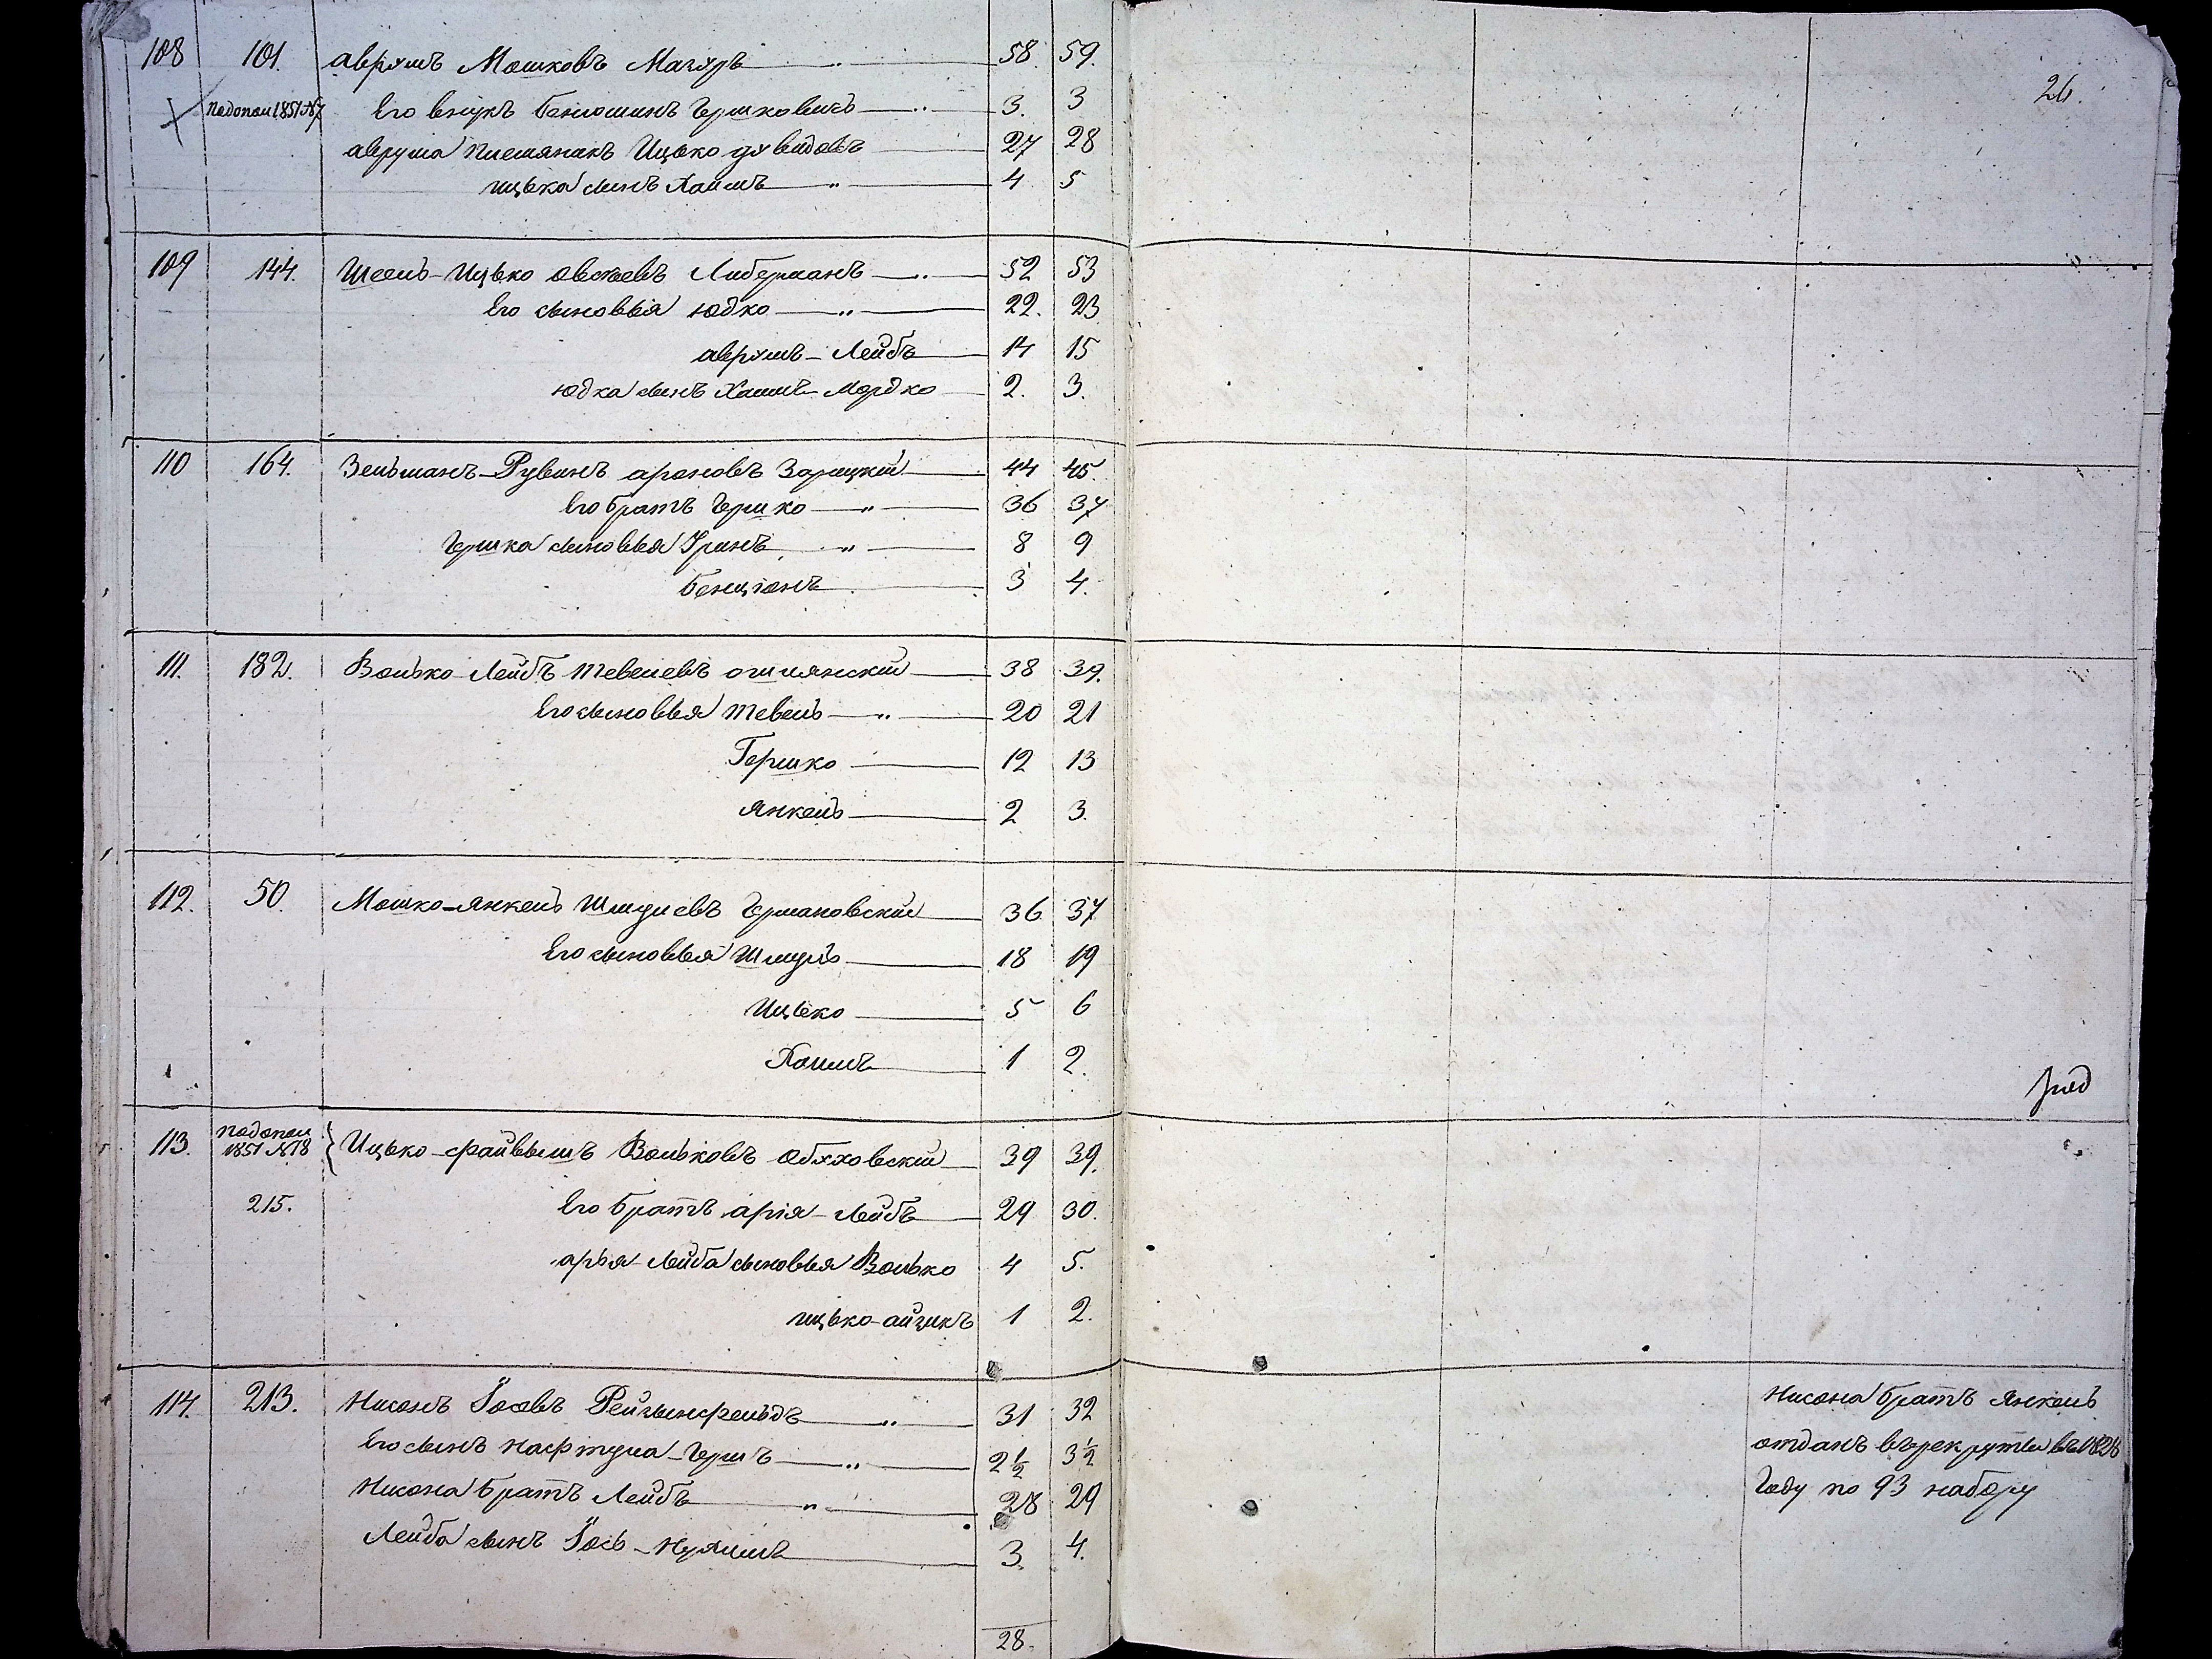 108 101. Аврумъ Мошковъ Магаръ 58. 59.
По допол 1851 №7 Его внукъ Бенюминъ Гершковичъ 3. 3
Аврума племяникъ Ицько Давидовъ 27 28
Ицька сынъ Хаимъ 4 5
109 144. Ицько Овсеевъ Либерманъ 52 53
Его сыновья Юдко 22. 23
Аврумъ-Лейбъ 14 15
Юдка сынъ Хаимъ-Мордко 2. 3.
110 164. Зельманъ-Рувинъ Ароновъ Зарицкій 44 45.
Его братъ Гершко 36 37
Гершка сыновья 8 9
Бенціонъ 3 4.
111. 182. Волько-Лейбъ Тевелевъ Ошмянскій 38 39.
Его сыновья Тевель 20 21
Гершко 12 13
Янкель 2 3.
112. 50. Мошко-Янкель Шмулевъ Германовскій 36 37
Его сыновья Шмуль 18 19
Ицько 5 6
Хаимъ 1 2.
113. По допол 1851 №18 Ицько-Файвышъ Вольковъ Обуховскій 39 39.
215. Его братъ Арія-Лейбъ 29 30.
Арья-Лейба сыновья Волько 4 5.
Ицько-Айзикъ 1 2.
114. 213. Нисонъ Іосевъ Рейзынфельдъ 31 32
Его сынъ Нафтула-Гершъ 2½ 3½
Нисона братъ Лейбъ 28 29
Лейба сынъ Іось-Нухимъ 3. 4.
28.
26.
Нисона братъ Янкель
отданъ въ рекруты въ 1828
Году по 93 набору